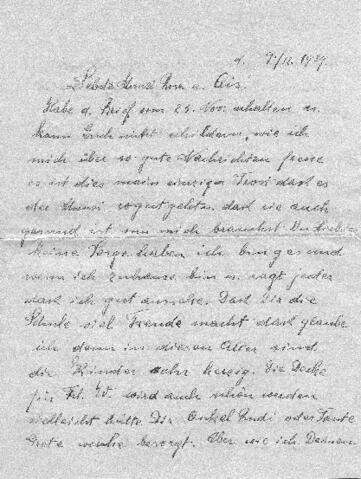 d. 9./12. 1939.
Liebste Hansi Rosa u. Cis.
Habe d. Brief vom 25. Nov. erhalten u.
kann Euch nicht schildern, wie ich
mich über so gute Nachrichten freue
es ist dies mein einziger Trost dass es
der Hansi so gut geht u. dass sie auch
gesund ist um mich brauchst Du Liebste
keine Sorge haben ich bin gesund
wenn ich zuhause bin u. sagt jeder
dass ich gut aussehe. Dass Dir die
Schule viel Freude macht dass glaube
ich denn in diesem Alter sind
die Kinder sehr herzig. Die Decke
für Frl. W. wird auch schön werden
vielleicht hätte Dir Onkel Rudi oder Tante
Grete welche besorgt. Aber wie ich